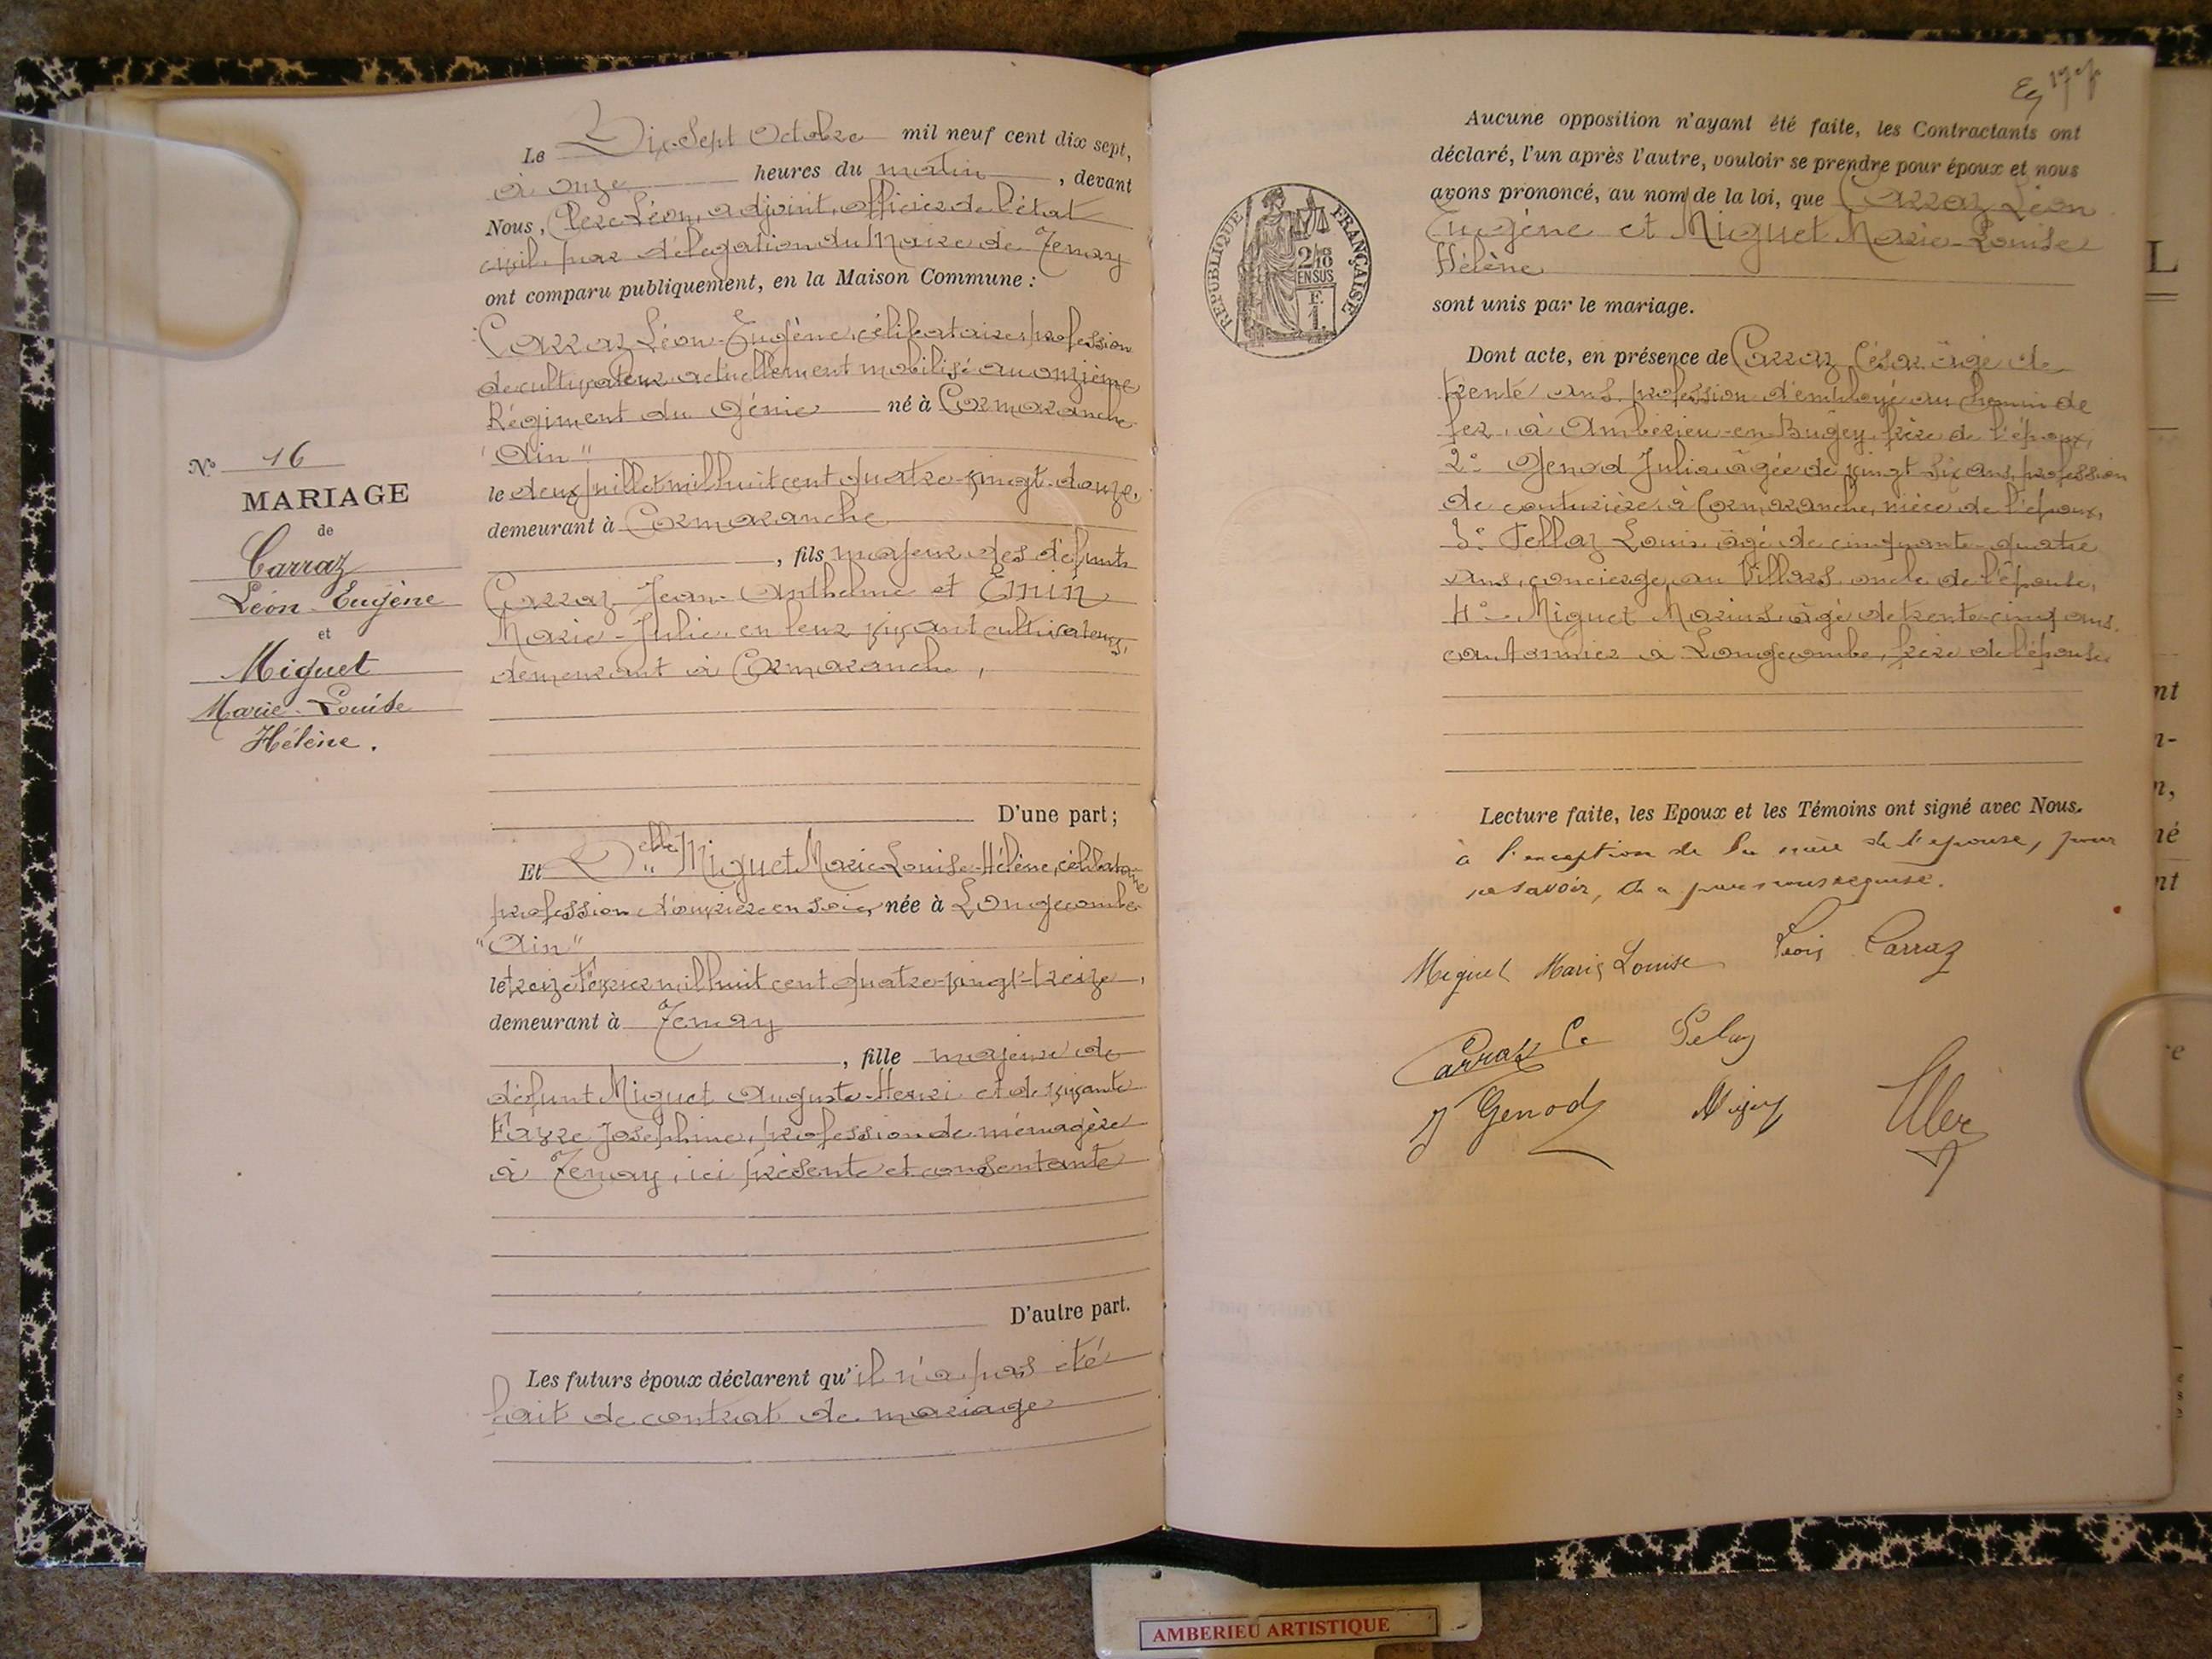 Le Dix-Sept Octobre mil neuf cent dix sept,
à onze heures du matin, devant
Nous, Léon, adjoint, officier de l'état
civil par délégation du Maire de Tenay
ont comparu publiquement, en la Maison Commune :
Carraz Léon-Eugène, célibataire, profession
de cultivateur actuellement mobilisé au onzième
Régiment du Génie né à Cormaranche
"Ain"
le deux juillet mil huit cent quatre-vingt-douze,
demeurant à Cormaranche
, fils majeur des défunts
Carraz Jean-Anthelme et Emin
Marie-Julie, en leur vivant cultivateurs,
demeurant à Cormaranche,
D'une part;
N° 16
MARIAGE
de
Carraz
Léon-Eugène
et
Miguet
Marie-Louise
Hélène.
Et Delle Miguet Marie Louise-Hélène, célibataire
profession d'ouvrière en soie, née à Longecombe
"Ain"
le treize février mil huit cent quatre-vingt-treize,
demeurant à Tenay
, fille majeure de
défunt Miguet Auguste-Henri et de vivante
Favre Joséphine, profession de ménagère
à Tenay, ici présente et consentante
D'autre part.
Les futurs époux déclarent qu'il n'a pas été
fait de contrat de mariage
Aucune opposition n'ayant été faite, les Contractants ont
déclaré, l'un après l'autre, vouloir se prendre pour époux et nous
avons prononcé, au nom de la loi, que Carraz Léon
Eugène et Miguet Marie-Louise
Hélène
sont unis par le mariage.
REPUBLIQUE FRANÇAISE
2/10
EN SUS
F.
1.
Dont acte, en présence de Carraz César âgé de
trente ans, profession d'employé au chemin de
fer, à Ambérieu-en-Bugey, frère de l'époux,
2° Genod Julia âgée de vingt-six ans, profession
de couturière à Cormaranche, nièce de l'époux,
3° Louis âgé de cinquante-quatre
ans, concierge, au Villars, oncle de l'épouse,
4° Miguet Marius âgé de trente-cinq ans,
cantonnier à Longecombe, frère de l'épouse.
Lecture faite, les Epoux et les Témoins ont signé avec Nous.
à l'exception de la mère de l'épouse, pour
ne savoir, de ce par nous requise.
Miguet Marie Louise Carraz
Carraz C.
J Genod
AMBERIEU ARTISTIQUE